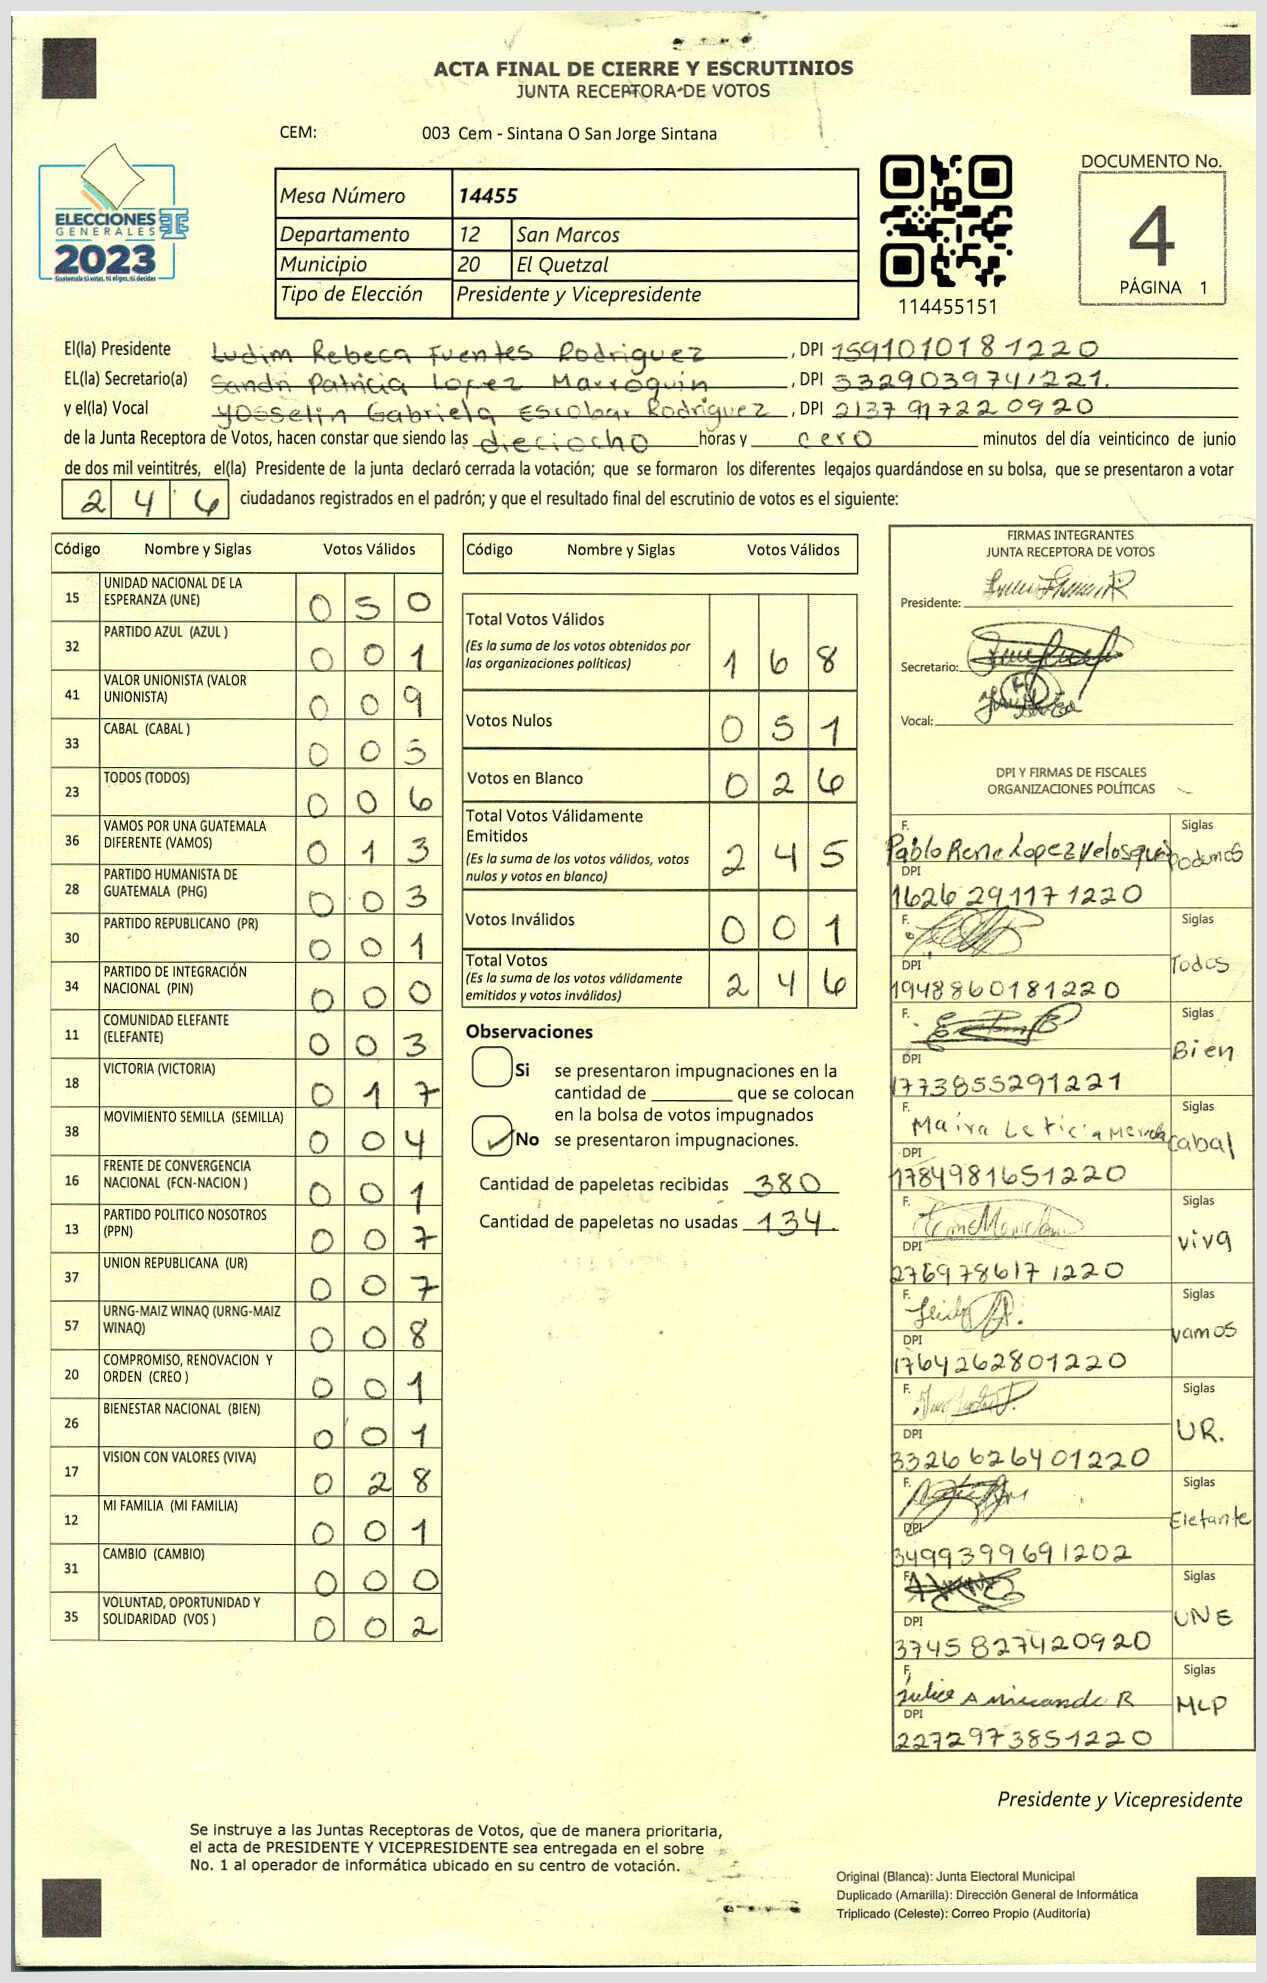 ACTA FINAL DE CIERRE Y ESCRUTINIOS
JUNTA RECEPTORA DE VOTOS
CEM: 003 Cem - Sintana O San Jorge Sintana
ELECCIONES
GENERALES
2023
Guatemala tú votas, tú eliges, tú decides
Mesa Número 14455
Departamento 12 San Marcos
Municipio 20 El Quetzal
Tipo de Elección Presidente y Vicepresidente
114455151
DOCUMENTO No.
4
PÁGINA 1
El(la) Presidente Ludim Rebeca Fuentes Rodriguez, DPI 1591010181220
EL(la) Secretario(a) Sandri Patricia Lopez Marroquin, DPI 3329039741221.
y el(la) Vocal Yosselin Gabriela Escobar Rodriguez, DPI 2137917220920
de la Junta Receptora de Votos, hacen constar que siendo las dieciocho horas y cero minutos del día veinticinco de junio
de dos mil veintitrés, el(la) Presidente de la junta declaró cerrada la votación; que se formaron los diferentes legajos guardándose en su bolsa, que se presentaron a votar
246 ciudadanos registrados en el padrón; y que el resultado final del escrutinio de votos es el siguiente:
Código Nombre y Siglas Votos Válidos
15 UNIDAD NACIONAL DE LA ESPERANZA (UNE) 050
32 PARTIDO AZUL (AZUL ) 001
41 VALOR UNIONISTA (VALOR UNIONISTA) 009
33 CABAL (CABAL ) 005
23 TODOS (TODOS) 006
36 VAMOS POR UNA GUATEMALA DIFERENTE (VAMOS) 013
28 PARTIDO HUMANISTA DE GUATEMALA (PHG) 003
30 PARTIDO REPUBLICANO (PR) 001
34 PARTIDO DE INTEGRACIÓN NACIONAL (PIN) 000
11 COMUNIDAD ELEFANTE (ELEFANTE) 003
18 VICTORIA (VICTORIA) 017
38 MOVIMIENTO SEMILLA (SEMILLA) 004
16 FRENTE DE CONVERGENCIA NACIONAL (FCN-NACION ) 001
13 PARTIDO POLITICO NOSOTROS (PPN) 007
37 UNION REPUBLICANA (UR) 007
57 URNG-MAIZ WINAQ (URNG-MAIZ WINAQ) 008
20 COMPROMISO, RENOVACION Y ORDEN (CREO ) 001
26 BIENESTAR NACIONAL (BIEN) 001
17 VISION CON VALORES (VIVA) 028
12 MI FAMILIA (MI FAMILIA) 001
31 CAMBIO (CAMBIO) 000
35 VOLUNTAD, OPORTUNIDAD Y SOLIDARIDAD (VOS ) 002
Código Nombre y Siglas Votos Válidos
Total Votos Válidos
(Es la suma de los votos obtenidos por las organizaciones políticas) 168
Votos Nulos 051
Votos en Blanco 026
Total Votos Válidamente Emitidos
(Es la suma de los votos válidos, votos nulos y votos en blanco) 245
Votos Inválidos 001
Total Votos
(Es la suma de los votos válidamente emitidos y votos inválidos) 246
Observaciones
Si se presentaron impugnaciones en la
cantidad de ________ que se colocan
en la bolsa de votos impugnados
No se presentaron impugnaciones.
Cantidad de papeletas recibidas 380
Cantidad de papeletas no usadas 134.
FIRMAS INTEGRANTES
JUNTA RECEPTORA DE VOTOS
Presidente:
Secretario:
Vocal:
DPI Y FIRMAS DE FISCALES
ORGANIZACIONES POLÍTICAS
F. Pablo Rene Lopez Velosquin Siglas Podemos
DPI 1626291171220
F. Siglas Todos
DPI 1948860181220
F. Siglas Bien
DPI 1773855291221
F. Maira Leticia Siglas Cabal
DPI 1784981651220
F. Siglas viva
DPI 2769786171220
F. Siglas vamos
DPI 1764262801220
F. Siglas UR.
DPI 3326626401220
F. Siglas Elefante
DPI 3499399691202
F. Siglas UNE
DPI 3745827420920
F. Siglas MLP
DPI 2272973851220
Presidente y Vicepresidente
Se instruye a las Juntas Receptoras de Votos, que de manera prioritaria,
el acta de PRESIDENTE Y VICEPRESIDENTE sea entregada en el sobre
No. 1 al operador de informática ubicado en su centro de votación.
Original (Blanca): Junta Electoral Municipal
Duplicado (Amarilla): Dirección General de Informática
Triplicado (Celeste): Correo Propio (Auditoría)